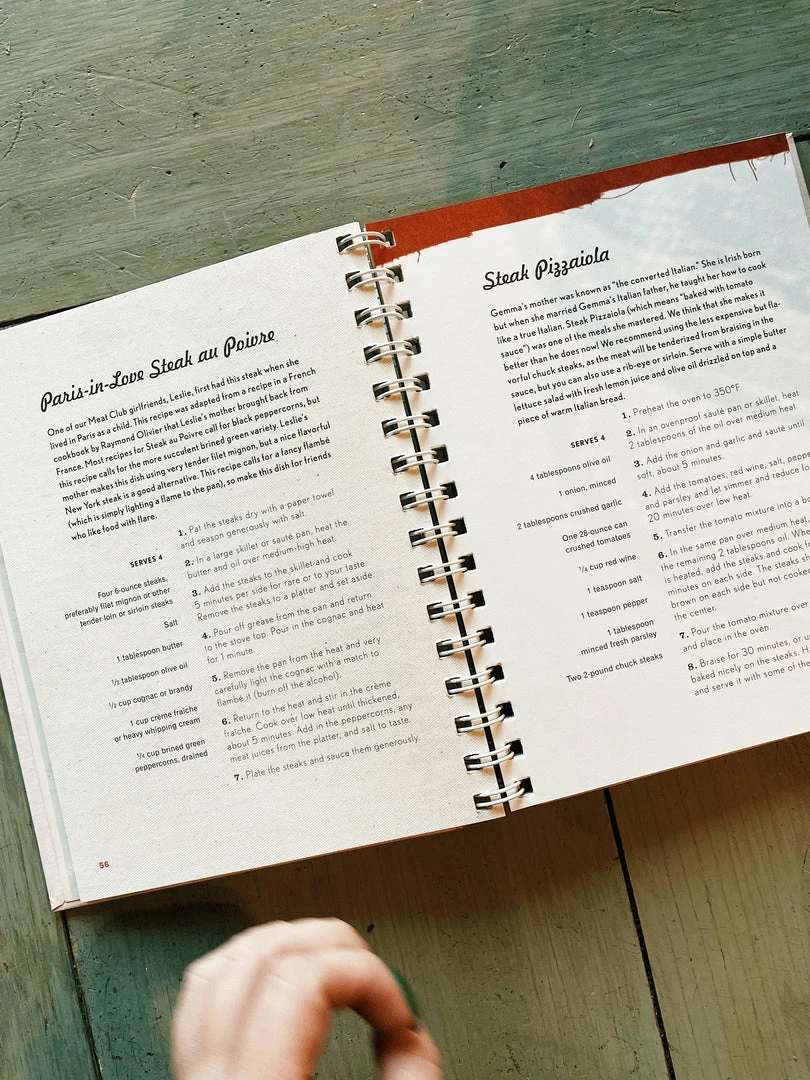 Paris-in-Love Steak au Poivre
One of our Meat Club girlfriends, Leslie, first had this steak when she
lived in Paris as a child. This recipe was adapted from a recipe in a French
cookbook by Raymond Olivier that Leslie's mother brought back from
France. Most recipes for Steak au Poivre call for black peppercorns, but
this recipe calls for the more succulent brined green variety. Leslie's
mother makes this dish using very tender filet mignon, but a nice flavorful
New York steak is a good alternative. This recipe calls for a fancy flambé
(which is simply lighting a flame to the pan), so make this dish for friends
who like food with flare.
SERVES 4
Four 6-ounce steaks,
preferably filet mignon or other
tender loin or sirloin steaks
Salt
1 tablespoon butter
1/2 tablespoon olive oil
1/2 cup cognac or brandy
1 cup crème fraîche
or heavy whipping cream
1/4 cup brined green
peppercorns, drained
1. Pat the steaks dry with a paper towel
and season generously with salt.
2. In a large skillet or sauté pan, heat the
butter and oil over medium-high heat.
3. Add the steaks to the skillet and cook
5 minutes per side for rare or to your taste.
Remove the steaks to a platter and set aside.
4. Pour off grease from the pan and return
to the stove top. Pour in the cognac and heat
for 1 minute.
5. Remove the pan from the heat and very
carefully light the cognac with a match to
flambé it (burn off the alcohol).
6. Return to the heat and stir in the crème
fraîche. Cook over low heat until thickened,
about 5 minutes. Add in the peppercorns, any
meat juices from the platter, and salt to taste.
7. Plate the steaks and sauce them generously.
56
Steak Pizzaiola
Gemma's mother was known as "the converted Italian." She is Irish born
but when she married Gemma's Italian father, he taught her how to cook
like a true Italian. Steak Pizzaiola (which means "baked with tomato
sauce") was one of the meals she mastered. We think that she makes it
better than he does now! We recommend using the less expensive but fla-
vorful chuck steaks, as the meat will be tenderized from braising in the
sauce, but you can also use a rib-eye or sirloin. Serve with a simple butter
lettuce salad with fresh lemon juice and olive oil drizzled on top and a
piece of warm Italian bread.
SERVES 4
4 tablespoons olive oil
1 onion, minced
2 tablespoons crushed garlic
One 28-ounce can
crushed tomatoes
1/4 cup red wine
1 teaspoon salt
1 teaspoon pepper
1 tablespoon
minced fresh parsley
Two 2-pound chuck steaks
1. Preheat the oven to 350°F.
2. In an ovenproof sauté pan or skillet, heat
2 tablespoons of the oil over medium heat.
3. Add the onion and garlic and sauté until
soft, about 5 minutes.
4. Add the tomatoes, red wine, salt,
and parsley and let simmer and reduce
20 minutes over low heat.
5. Transfer the tomato mixture into a
6. In the same pan over medium heat,
the remaining 2 tablespoons oil.
is heated, add the steaks and cook
minutes on each side. The steaks
brown on each side but not cooked
the center.
7. Pour the tomato mixture over
and place in the oven.
8. Braise for 30 minutes, or
baked nicely on the steaks.
and serve it with some of the